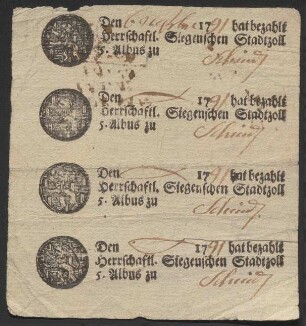 Den 1791 hat bezahlt
Herrschaftl. Siegenschen Stadtzoll
5. Albus zu
Den 1791 hat bezahlt
Herrschaftl. Siegenschen Stadtzoll
5. Albus zu
Den 1791 hat bezahlt
Herrschaftl. Siegenschen Stadtzoll
5. Albus zu
Den 1791 hat bezahlt
Herrschaftl. Siegenschen Stadtzoll
5. Albus zu